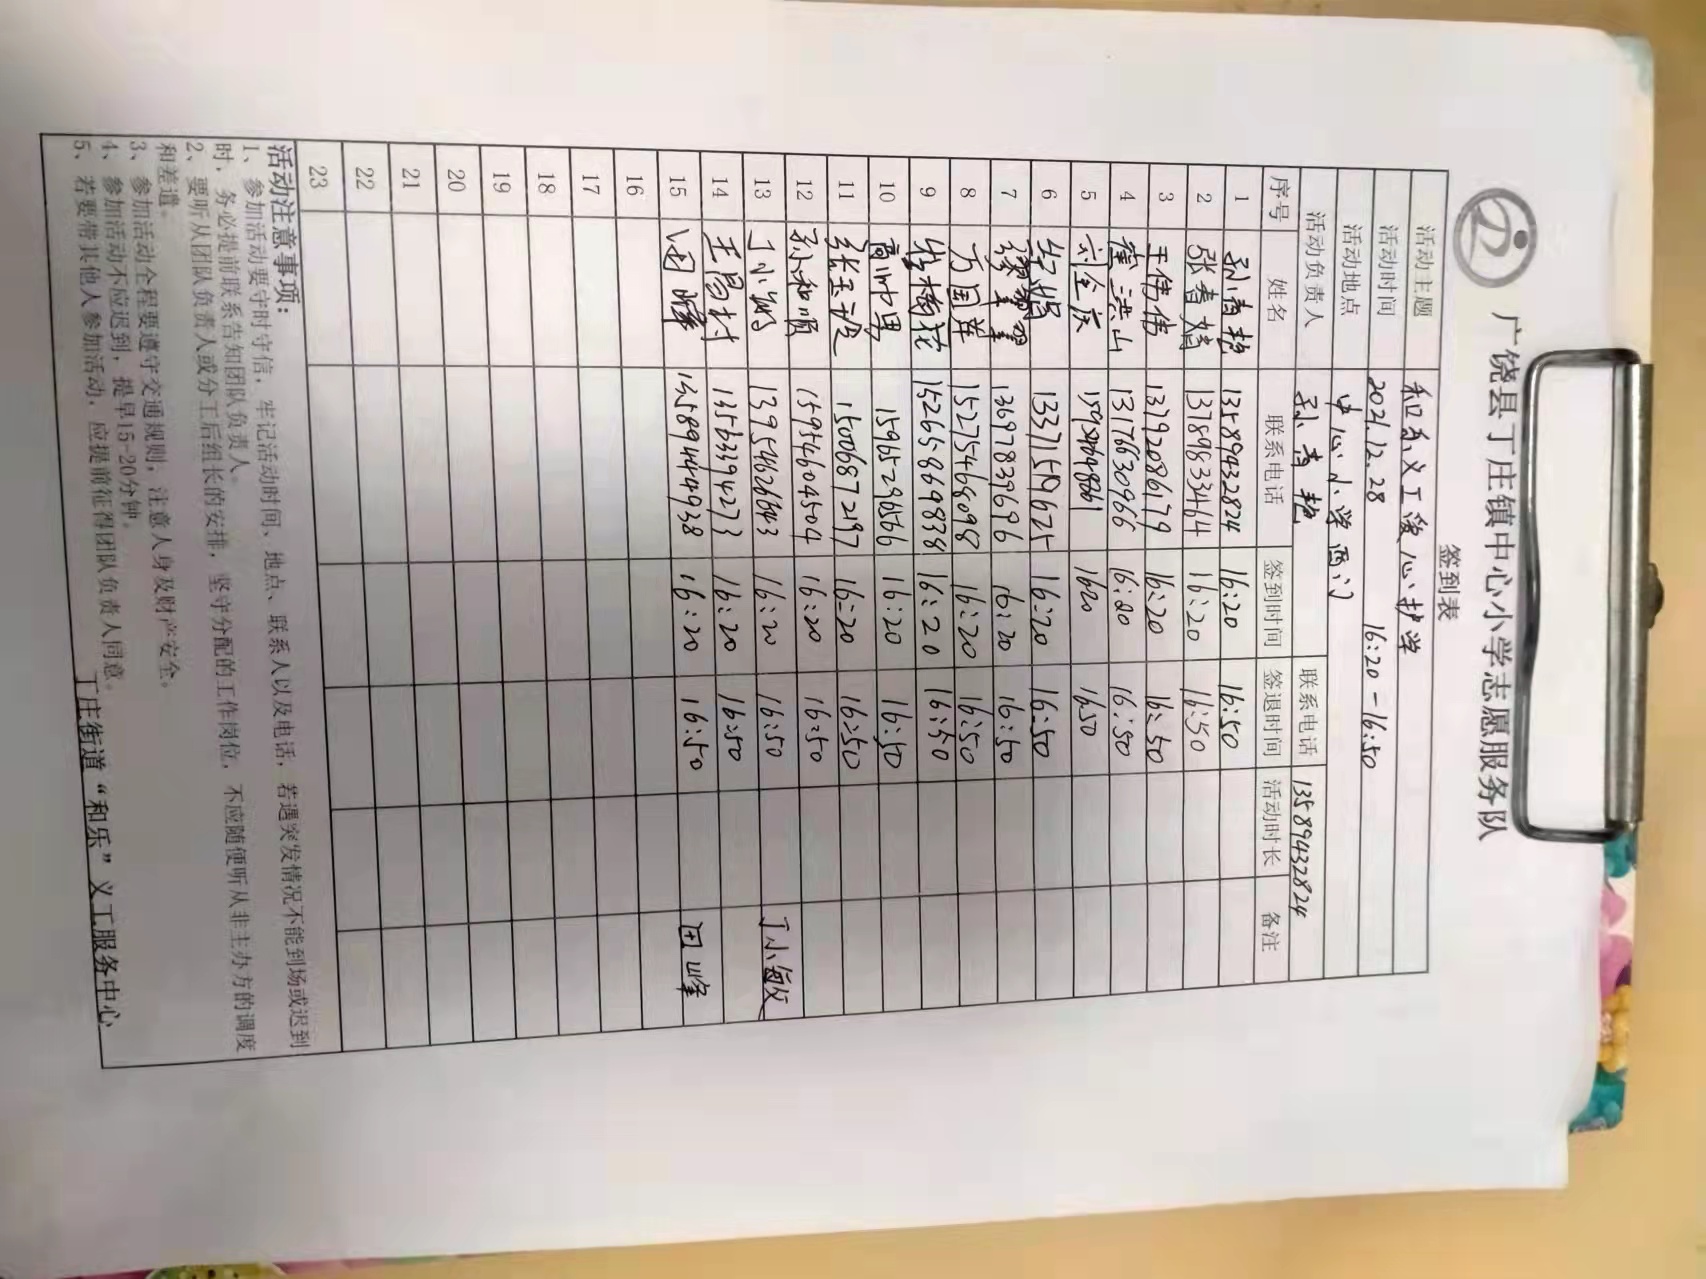 广饶县丁庄镇中心小学志愿服务队
签到表
活动主题 和乐义工爱心护学
活动时间 2021.12.28 16:20-16:50
活动地点 中心小学西门
活动负责人 孙青艳 联系电话 13589432824
序号 姓名 联系电话 签到时间 签退时间 活动时长 备注
1 孙青艳 13589432824 16:20 16:50
2 张春婧 13789833464 16:20 16:50
3 王伟伟 13792086179 16:20 16:50
4 董洪山 13176630966 16:20 16:50
5 刘金庆 1620 1650
6 13371519625 16:20 16:50
7 13697839696 16:20 16:50
8 方国华 15275468098 16:20 16:50
9 15265869838 16:20 16:50
10 高帅男 15965296566 16:20 16:50
11 张玉记 15006872197 16:20 16:50
12 孙和顺 15954604504 16:20 16:50
13 丁小敏 13954626643 16:20 16:50 丁小敏
14 王昌村 13563394273 16:20 16:50
15 田峰 13589444938 16:20 16:50 田峰
16
17
18
19
20
21
22
23
活动注意事项：
1、参加活动要守时守信，牢记活动时间、地点、联系人以及电话，若遇突发情况不能到场或迟到
时，务必提前联系告知团队负责人。
2、要听从团队负责人或分工后组长的安排，坚守分配的工作岗位，不应随便听从非主办方的调度
和差遣。
3、参加活动全程要遵守交通规则，注意人身及财产安全。
4、参加活动不应迟到，提早15-20分钟。
5、若要带其他人参加活动，应提前征得团队负责人同意。
丁庄街道“和乐”义工服务中心